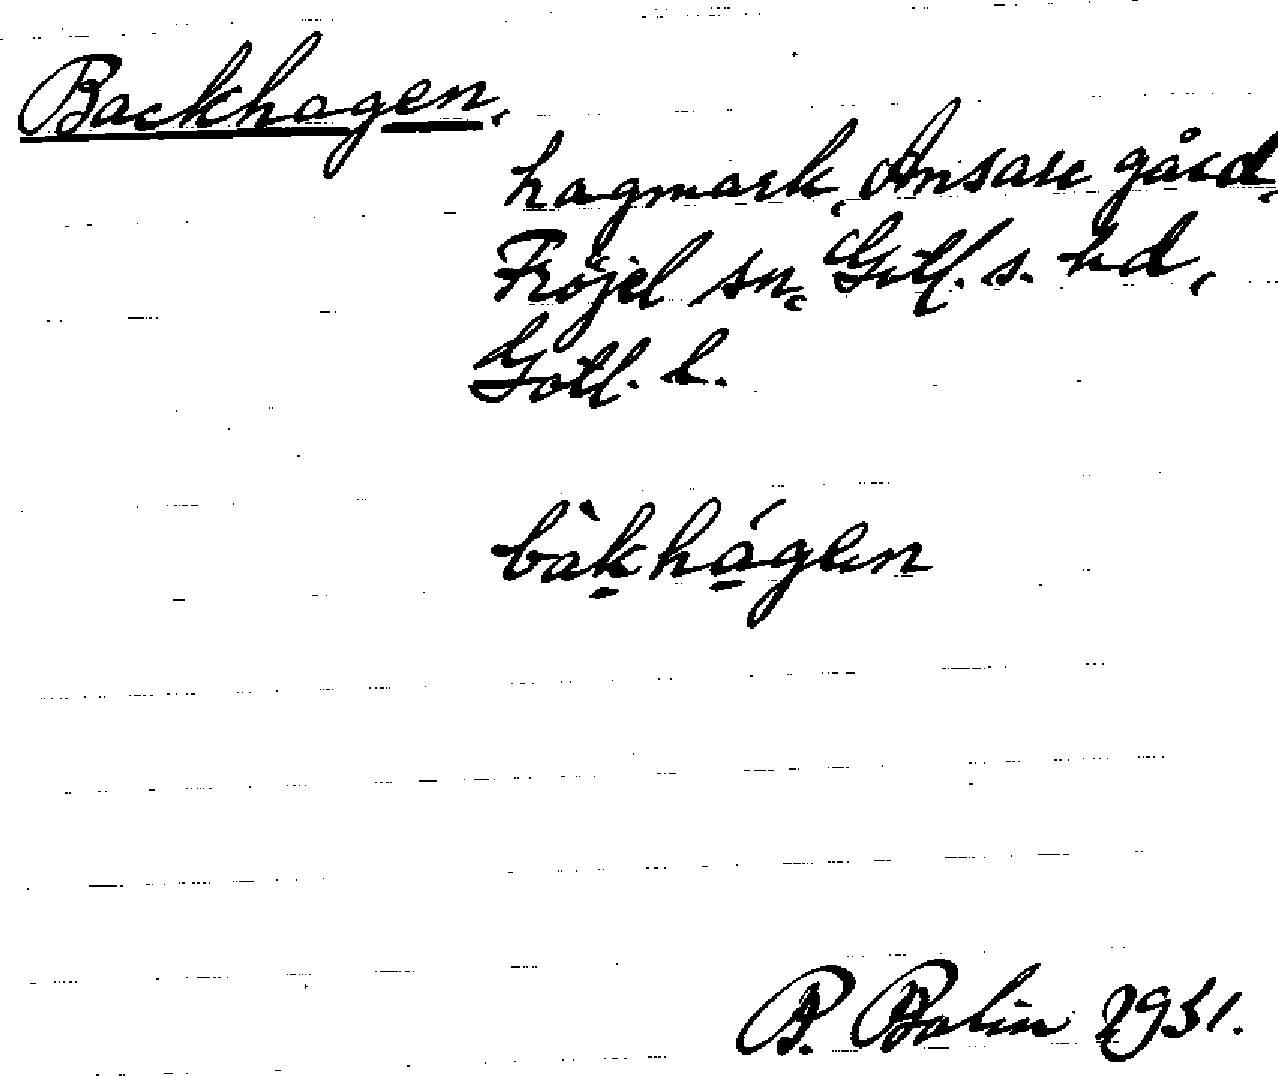 Backhagen,
hagmark, Ansare gård,
Fröjel sn, Gotl. s. hd,
Gotl. l.
bàk̠há̠gen
P. Bolin 1931.